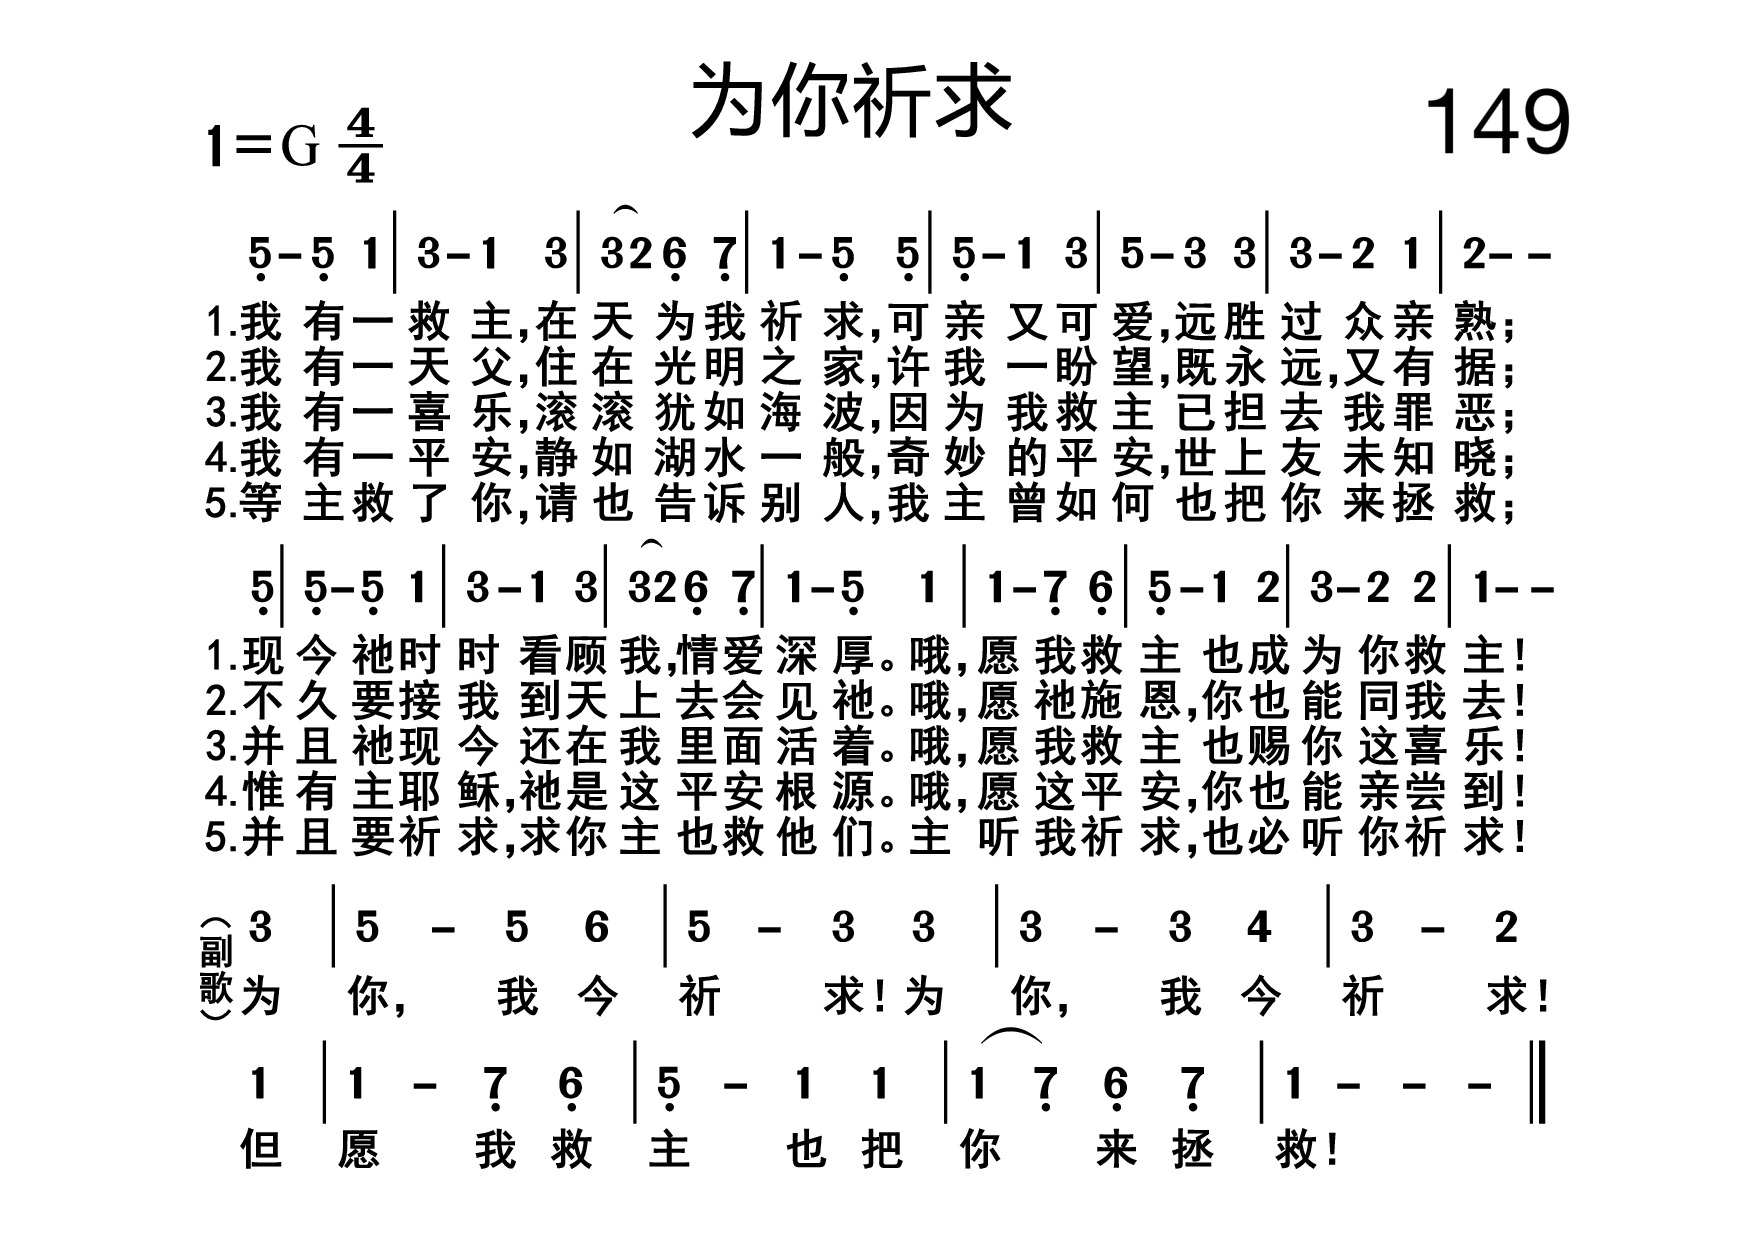 为你祈求
149
1=G 4/4
5-5 1|3-1 3|326 7|1-5 5|5-1 3|5-3 3|3-2 1|2--
1.我有一救主,在天为我祈求,可亲又可爱,远胜过众亲熟;
2.我有一天父,住在光明之家,许我一盼望,既永远,又有据;
3.我有一喜乐,滚滚犹如海波,因为我救主已担去我罪恶;
4.我有一平安,静如湖水一般,奇妙的平安,世上友未知晓;
5.等主救了你,请也告诉别人,我主曾如何也把你来拯救;
5|5-5 1|3-1 3|326 7|1-5 1|1-7 6|5-1 2|3-2 2|1--
1.现今祂时时看顾我,情爱深厚。哦,愿我救主也成为你救主!
2.不久要接我到天上去会见祂。哦,愿祂施恩,你也能同我去!
3.并且祂现今还在我里面活着。哦,愿我救主也赐你这喜乐!
4.惟有主耶稣,祂是这平安根源。哦,愿这平安,你也能亲尝到!
5.并且要祈求,求你主也救他们。主听我祈求,也必听你祈求!
3|5-5 6|5-3 3|3-3 4|3-2
(副歌)为你,我今祈求!为你,我今祈求!
1|1-7 6|5-1 1|1 7 6 7|1---‖
但愿我救主也把你来拯救!